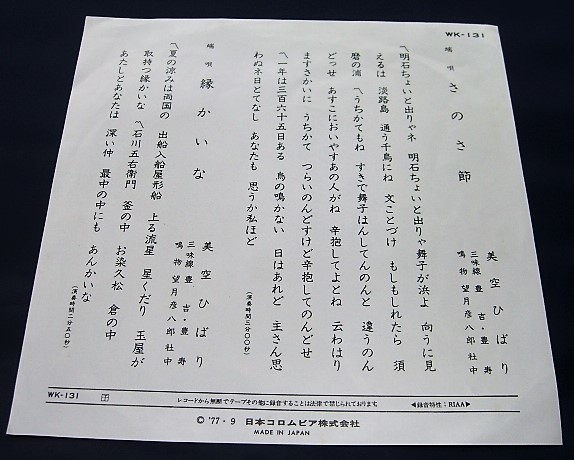 WK-131
端唄 さのさ節
美空ひばり
三味線 豊吉・豊寿
鳴物 望月彦八郎社中
〽明石ちょいと出りゃネ 明石ちょいと出りゃ舞子が浜よ 向うに見
えるは 淡路島 通う千鳥にね 文ことづけ もしもしれたら 須
磨の浦 〽うちかてもね すきで舞子はんしてんのんと 違うのん
どっせ あすこにおいやすあの人がね 辛抱してよとね 云わはり
ますさかいに うちかて つらいのんどすけど辛抱してのんどせ
〽一年は三百六十五日ある 烏の鳴かない 日はあれど 主さん思
わぬネ日とてなし あなたも 思うか私ほど
(演奏時間三分〇〇秒)
端唄 縁かいな
美空ひばり
三味線 豊吉・豊寿
鳴物 望月彦八郎社中
〽夏の涼みは両国の 出船入船屋形船 上る流星 星くだり 玉屋が
取持つ縁かいな 〽石川五右衛門 釜の中 お染久松 倉の中
あたしとあなたは 深い仲 最中の中にも あんかいな
(演奏時間二分五〇秒)
WK-131 田 レコードから無断でテープその他に録音することは法律で禁じられております ◀録音特性:RIAA▶
© '77・9 日本コロムビア株式会社
MADE IN JAPAN